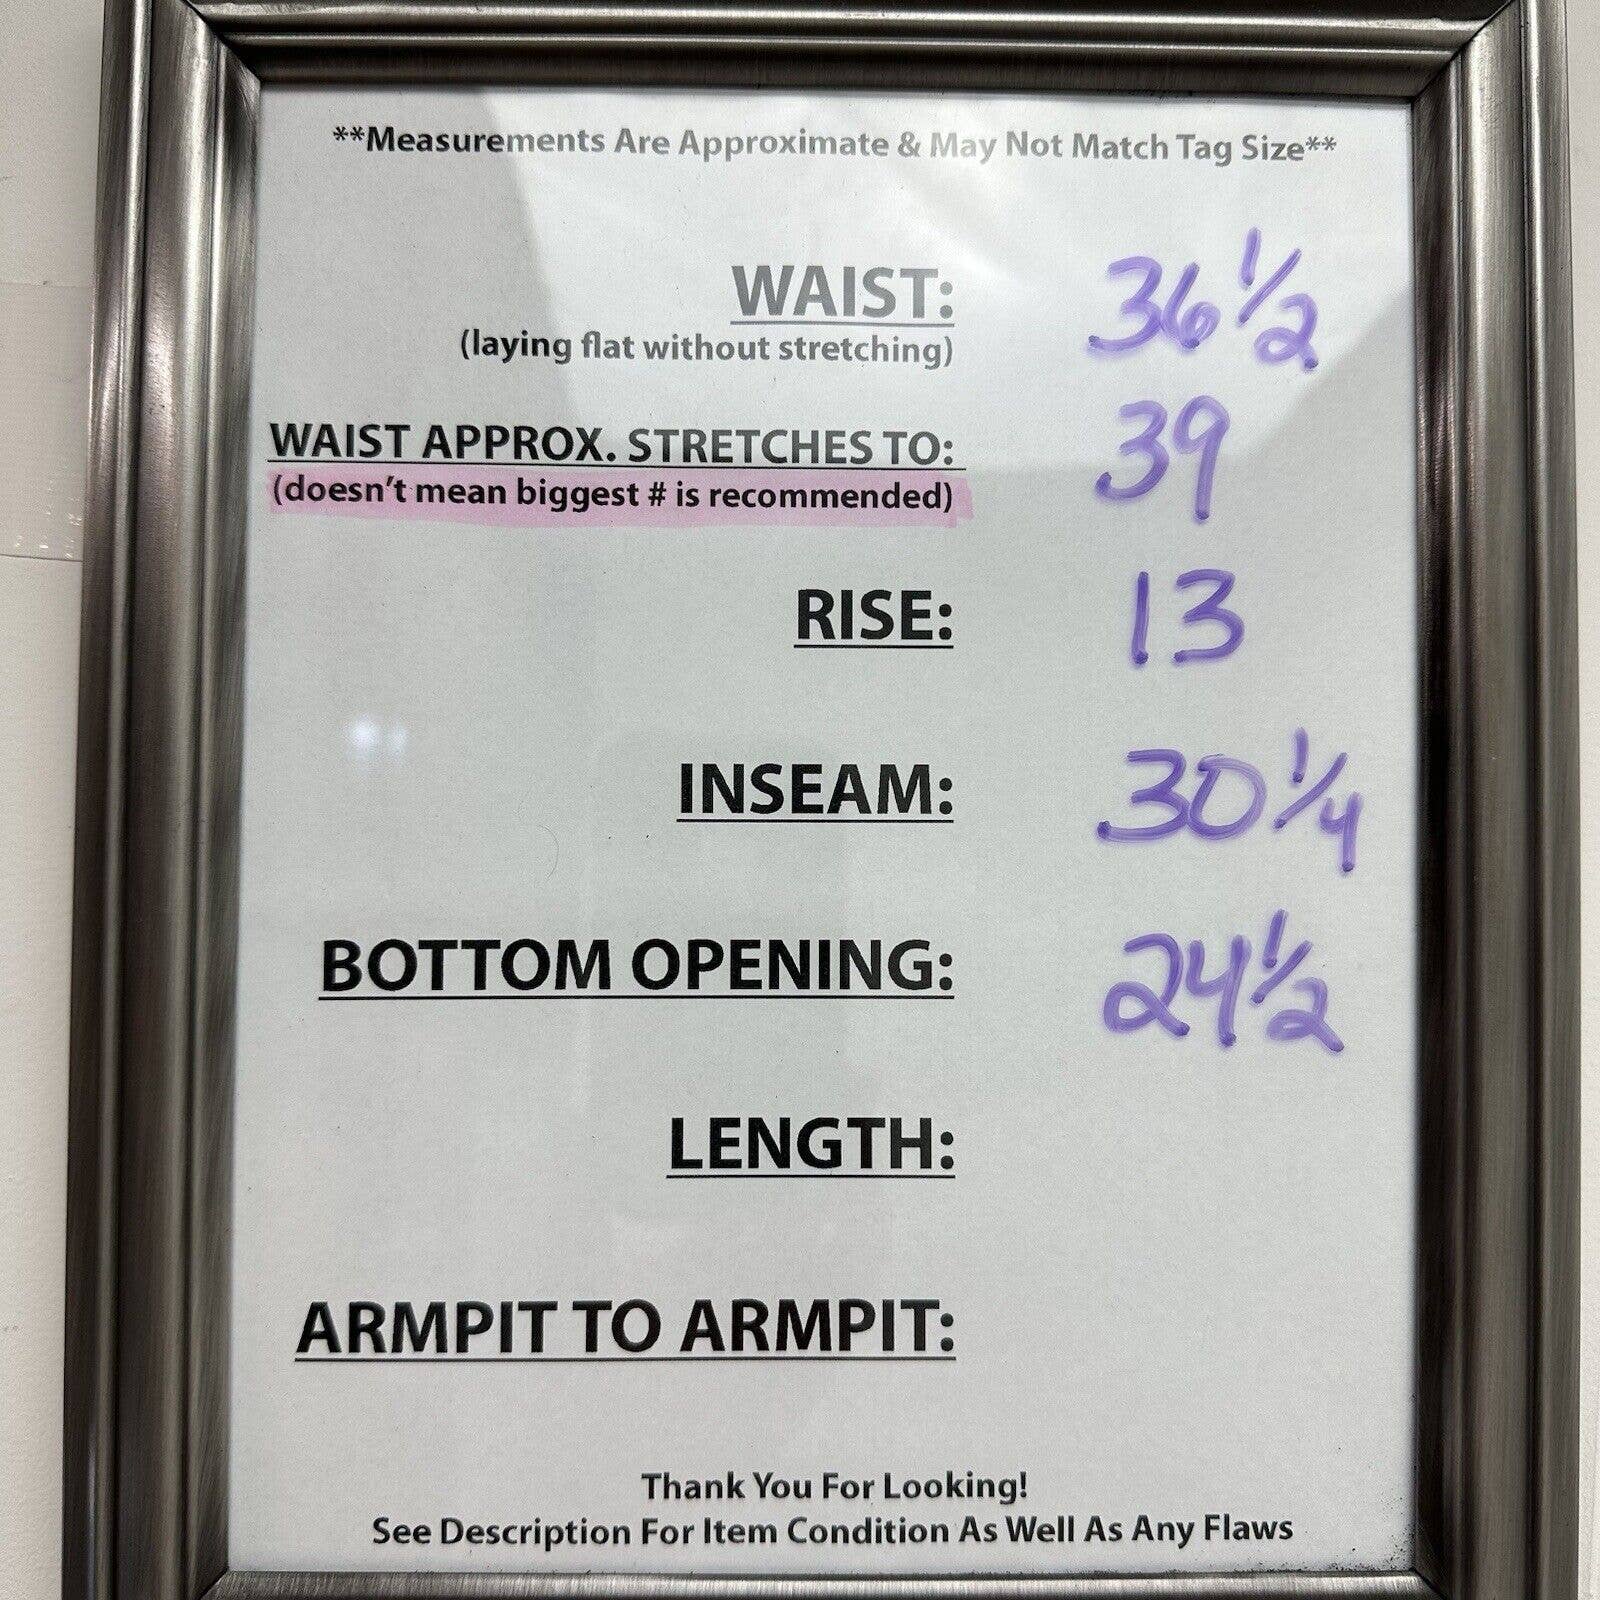 **Measurements Are Approximate & May Not Match Tag Size**
WAIST: 36 1/2
(laying flat without stretching)
WAIST APPROX. STRETCHES TO: 39
(doesn't mean biggest # is recommended)
RISE: 13
INSEAM: 30 1/4
BOTTOM OPENING: 24 1/2
LENGTH:
ARMPIT TO ARMPIT:
Thank You For Looking!
See Description For Item Condition As Well As Any Flaws